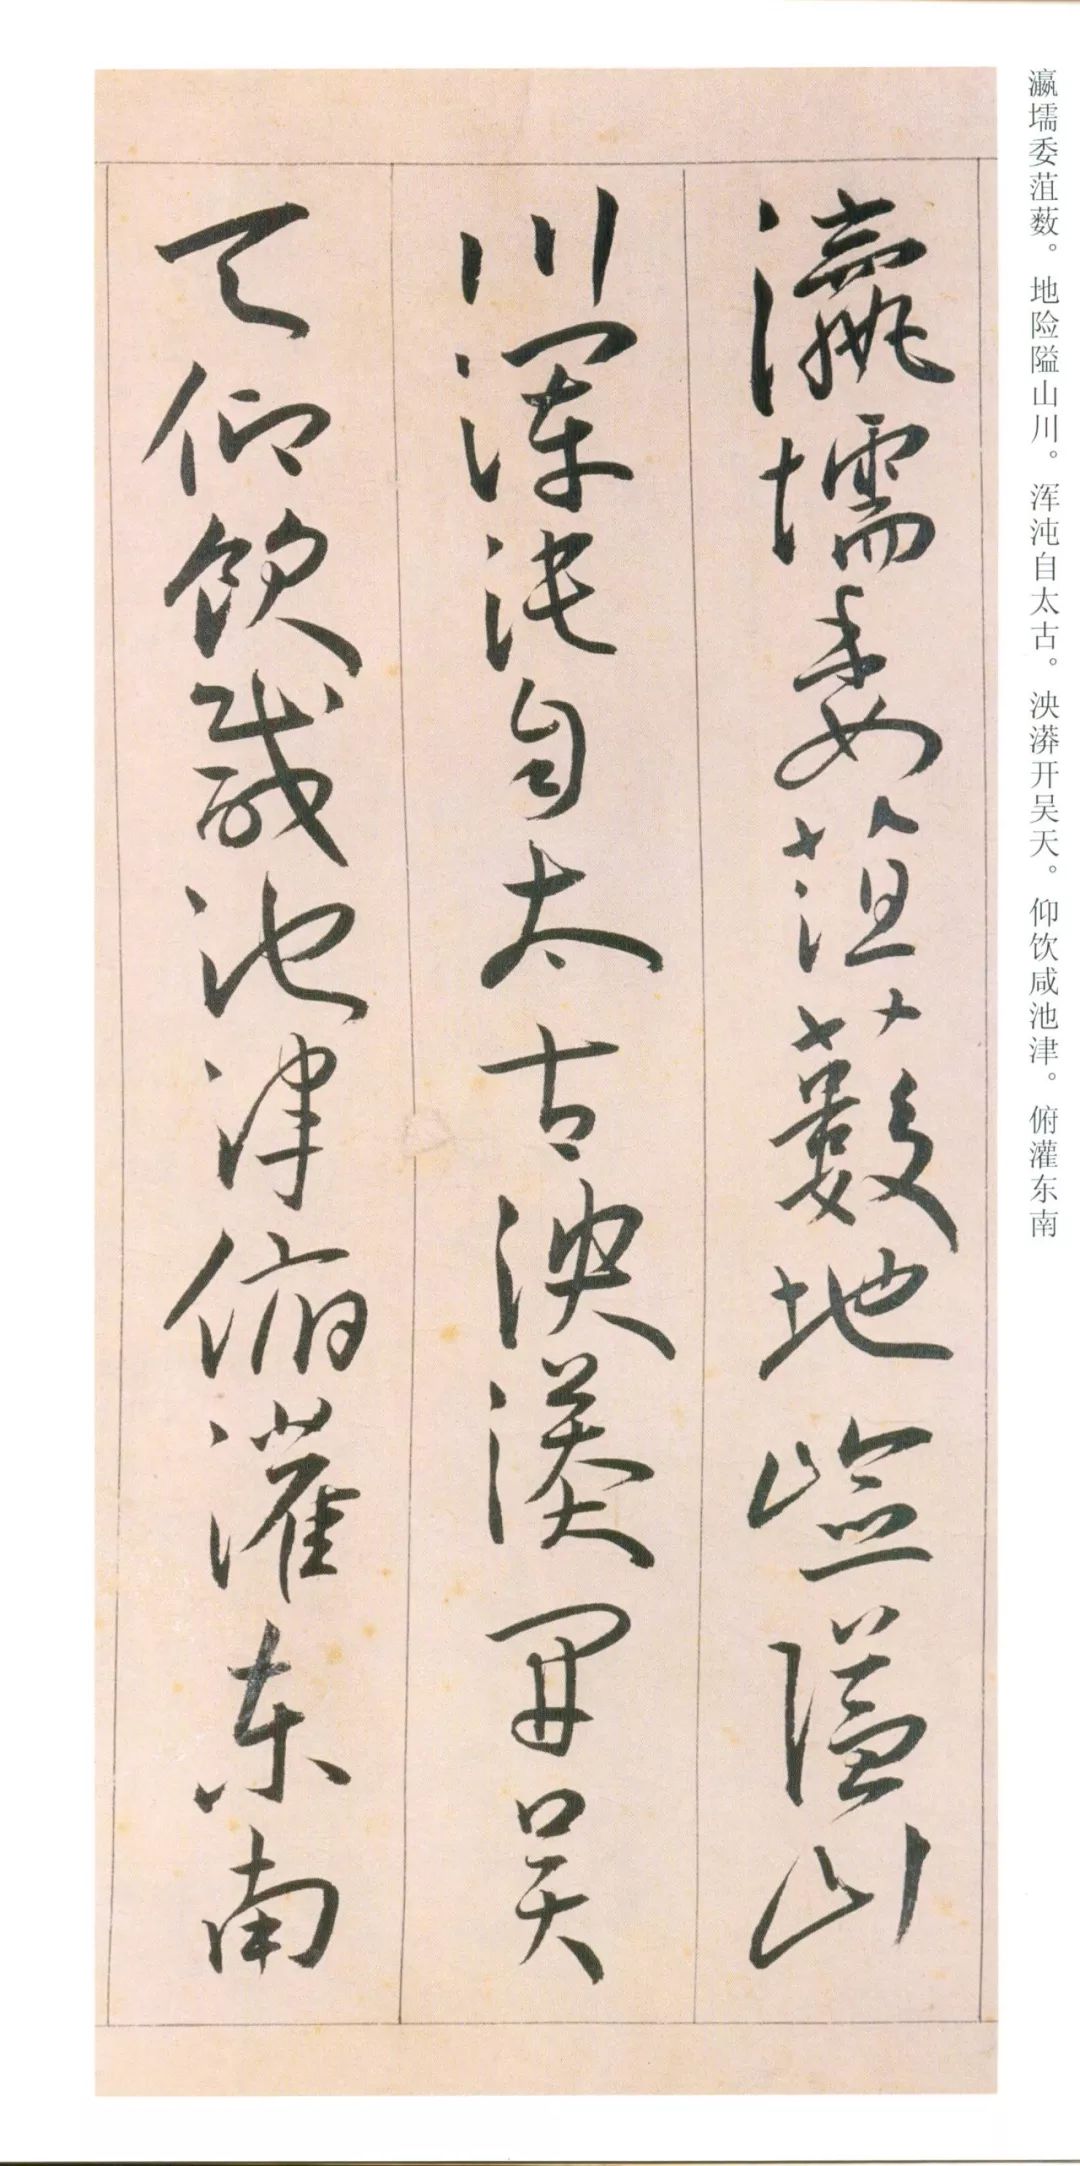 瀛壖委菹薮。地险隘山川。浑沌自太古。泱漭开吴天。仰饮咸池津。俯灌东南
瀛壖委菹薮地崄隘山
川浑沌自太古泱漭开吴
天仰饮咸池津俯灌东南